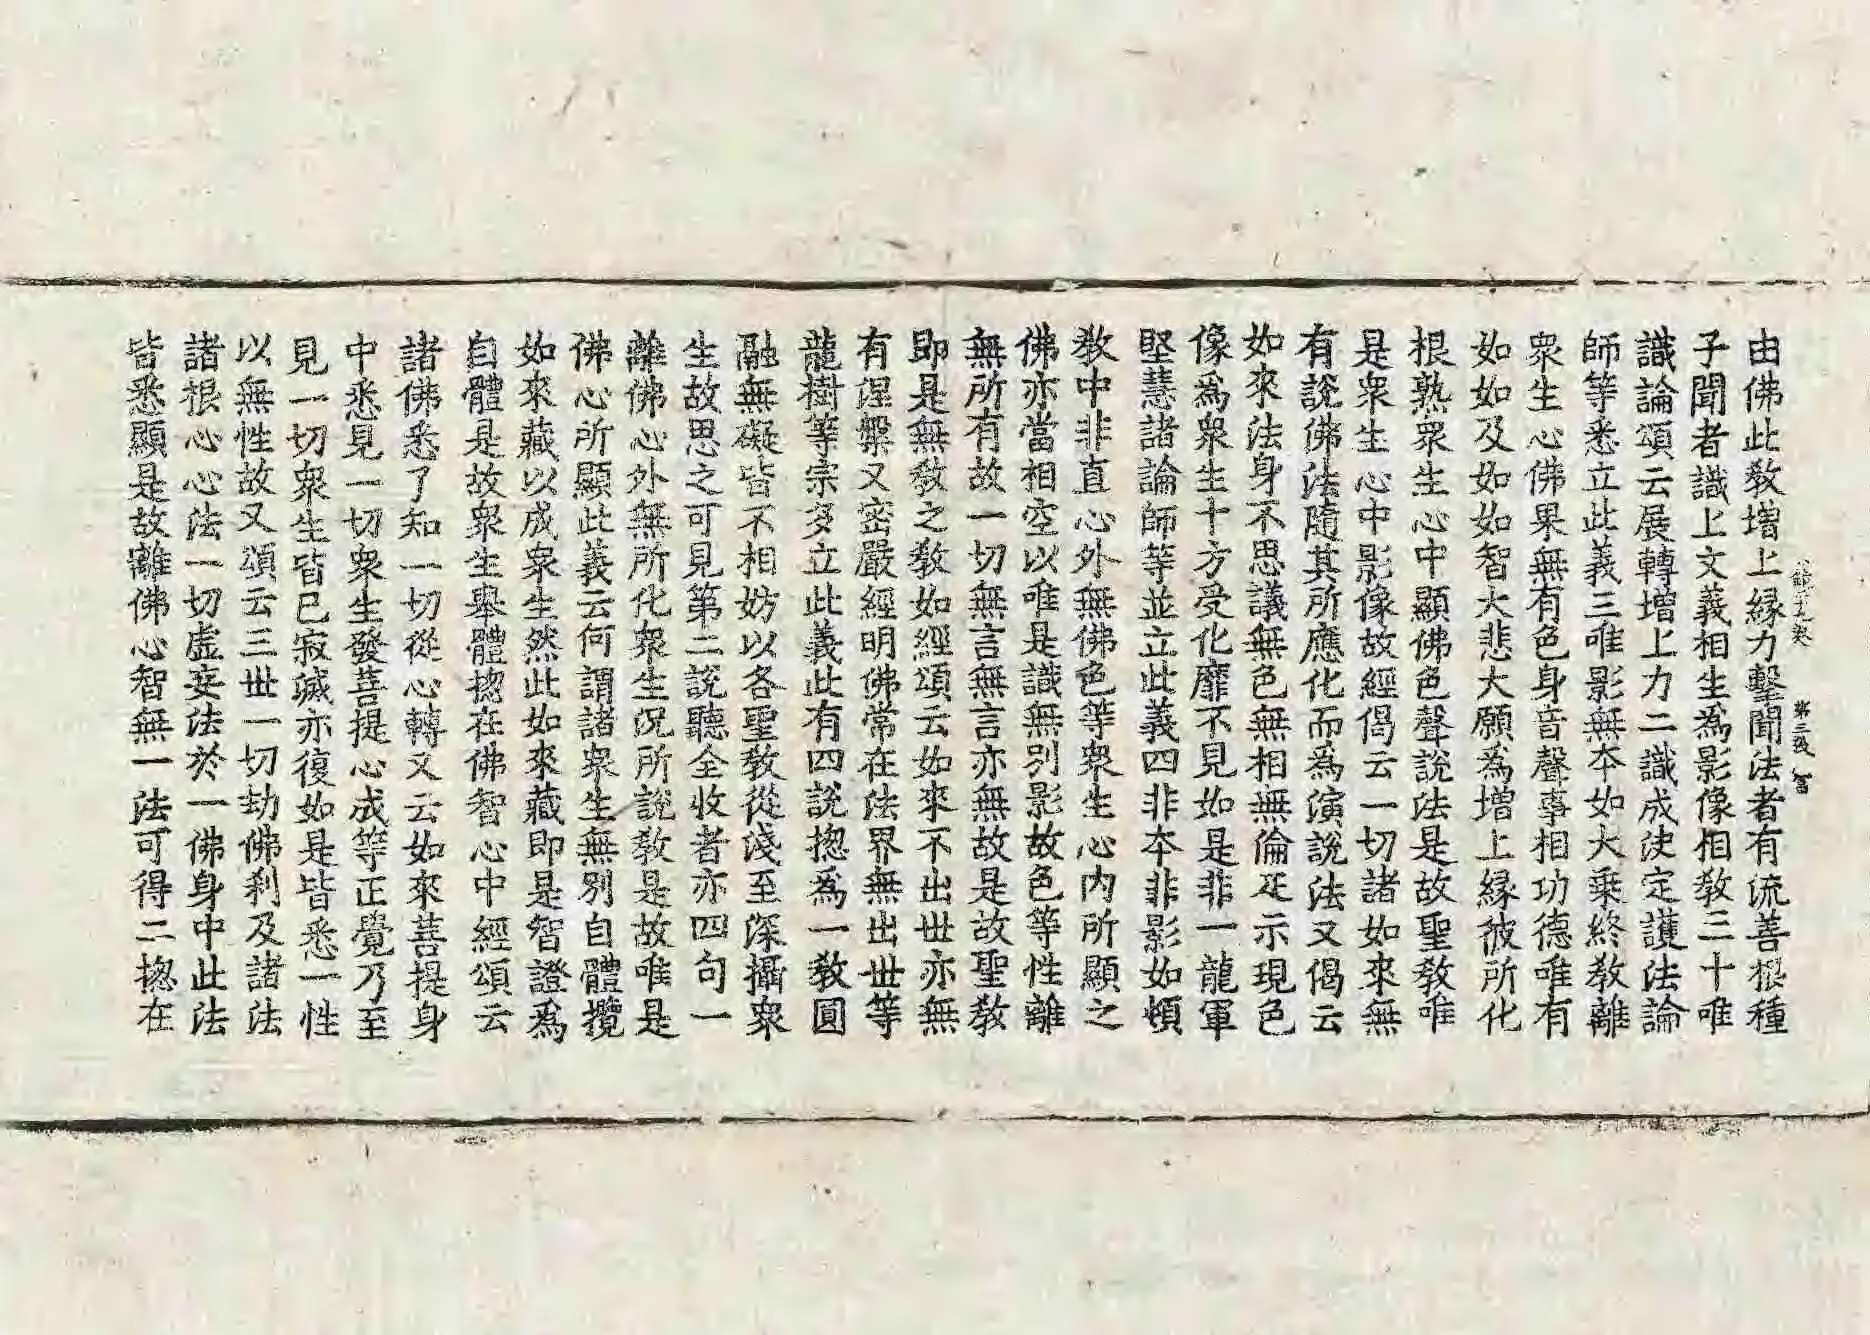 由佛此教增上縁力擊聞法者有流善根種
子聞者識上文義相生為影像相教三十唯
識論頌云展轉增上力二識成決定護法論
師等悉立此義三唯影無本如大乘終教離
衆生心佛果無有色身音聲事相功德唯有
如如及如如智大悲大願為增上縁彼所化
根熟衆生心中顯佛色聲說法是故聖教唯
是衆生心中影像故經偈云一切諸如來無
有說佛法隨其所應化而為演說法又偈云
如來法身不思議無色無相無倫疋示現色
像為衆生十方受化靡不見如是非一龍軍
堅慧諸論師等並立此義四非本非影如頓
教中非直心外無佛色等衆生心內所顯之
佛亦當相空以唯是識無別影故色等性離
無所有故一切無言無言亦無故是故聖教
即是無教之教如經頌云如來不出世亦無
有涅槃又密嚴經明佛常在法界無出世等
龍樹等宗多立此義此有四說揔為一教圓
融無礙皆不相妨以各聖教從淺至深攝衆
生故思之可見第二說聽全收者亦四句一
離佛心外無所化衆生況所說教是故唯是
佛心所顯此義云何謂諸衆生無別自體攬
如來藏以成衆生然此如來藏即是智證為
自體是故衆生舉體揔在佛智心中經頌云
諸佛悉了知一切從心轉又云如來菩提身
中悉見一切衆生發菩提心成等正覺乃至
見一切衆生皆已寂滅亦復如是皆悉一性
以無性故又頌云三世一切劫佛刹及諸法
諸根心心法一切虛妄法於一佛身中此法
皆悉顯是故離佛心智無一法可得二揔在